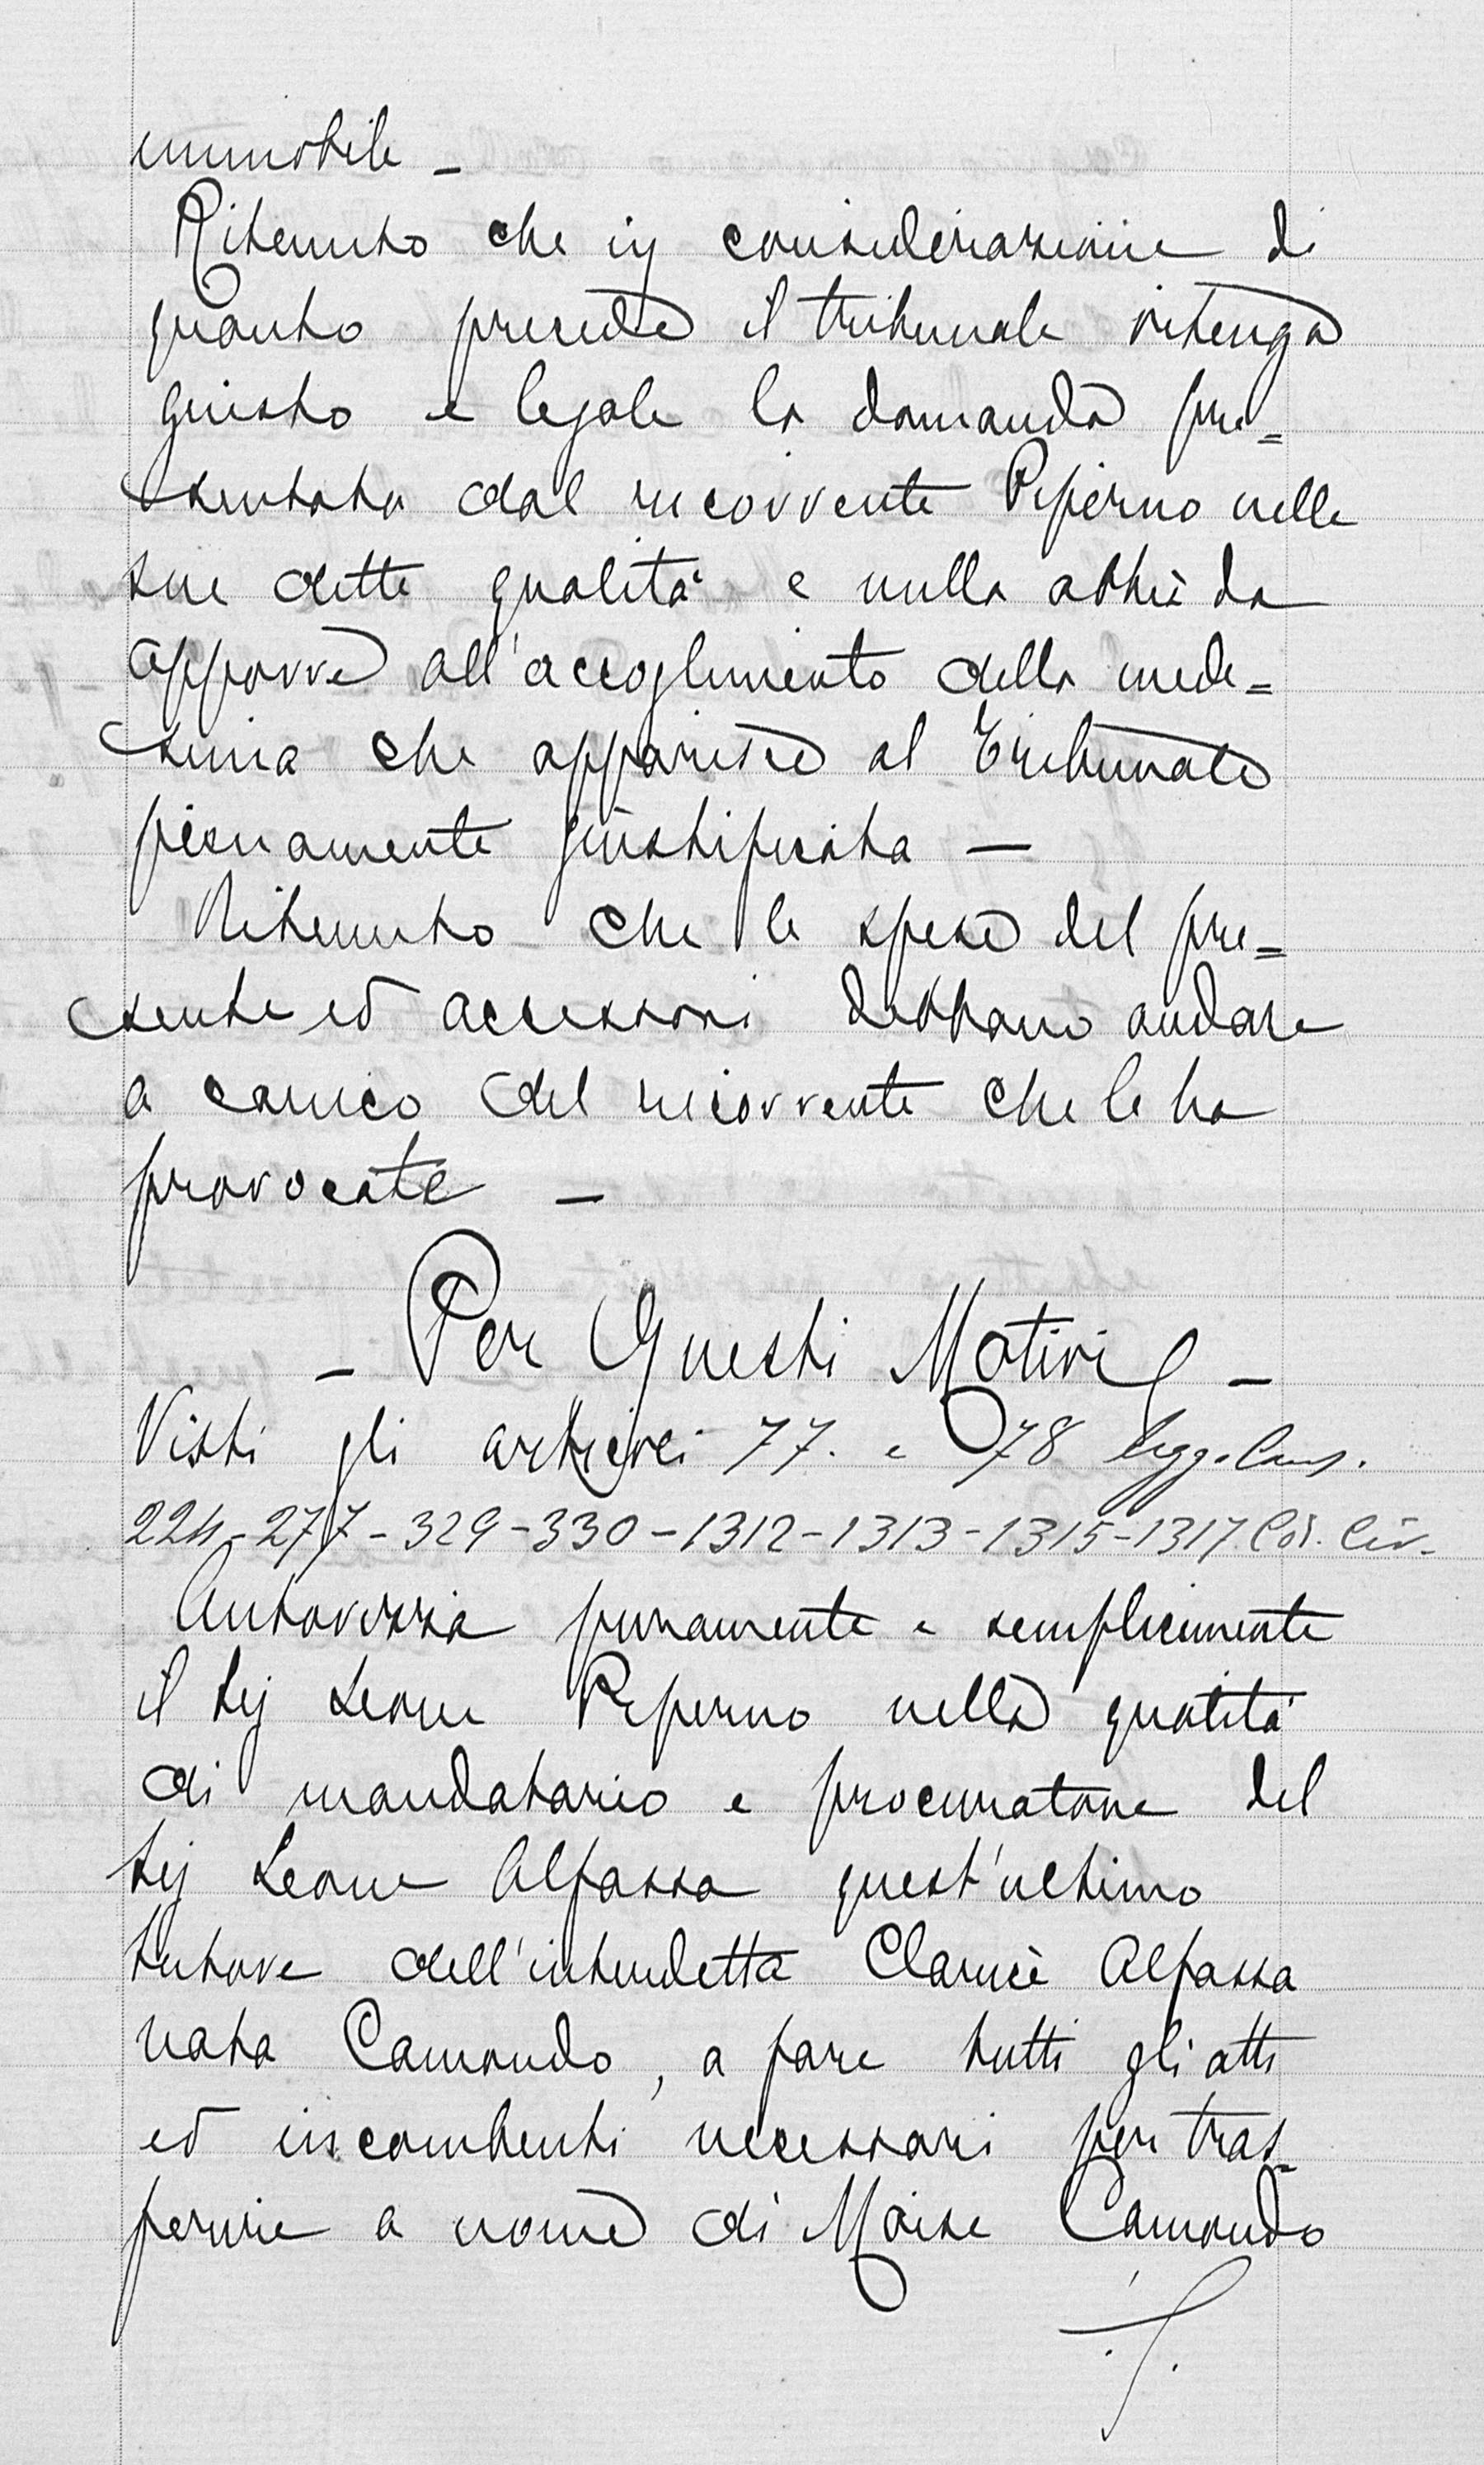 immobile -
Ritenuto che in considerazione di
quanto precede il tribunale ritenga
giusto e legale la domanda pre=
sentata dal ricorrente Piperno nelle
sue dette qualità e nulla abbia da
opporre all'accoglimento della mede=
sima che apparisce al Tribunale
pienamente giustificata -
Ritenuto che le spese del pre=
sente ed accessori debbano andare
a carico del ricorrente che le ha
provocate -
- Per Questi Motivi -
Visti gli articoli 77. e 78 legg. Cons.
224-277-329-330-1312-1313-1315-1317 Cod. Civ.
Autorizza puramente e semplicemente
il Sig Leone Piperno nella qualità
di mandatario e procuratore del
Sig Leone Alfassa quest'ultimo
tutore dell'interdetta Clarice Alfassa
nata Camondo, a fare tutti gli atti
ed incombenti necessari per tras_
ferire a nome di Moise Camondo